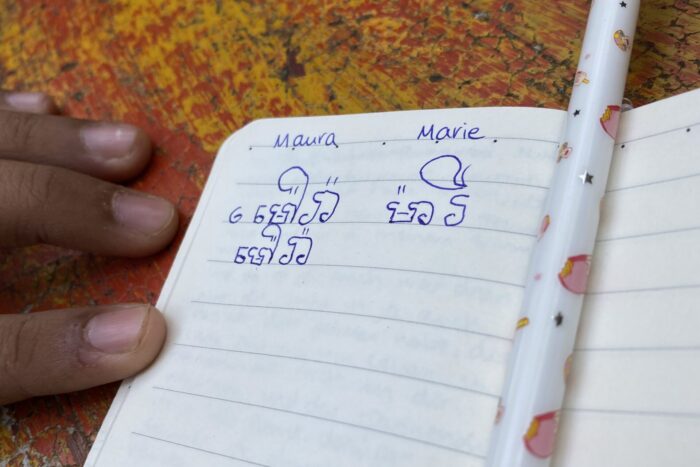 Maura Marie
ម៉ៅរ៉ា ម៉ារី
ម៉ៅរ៉ា